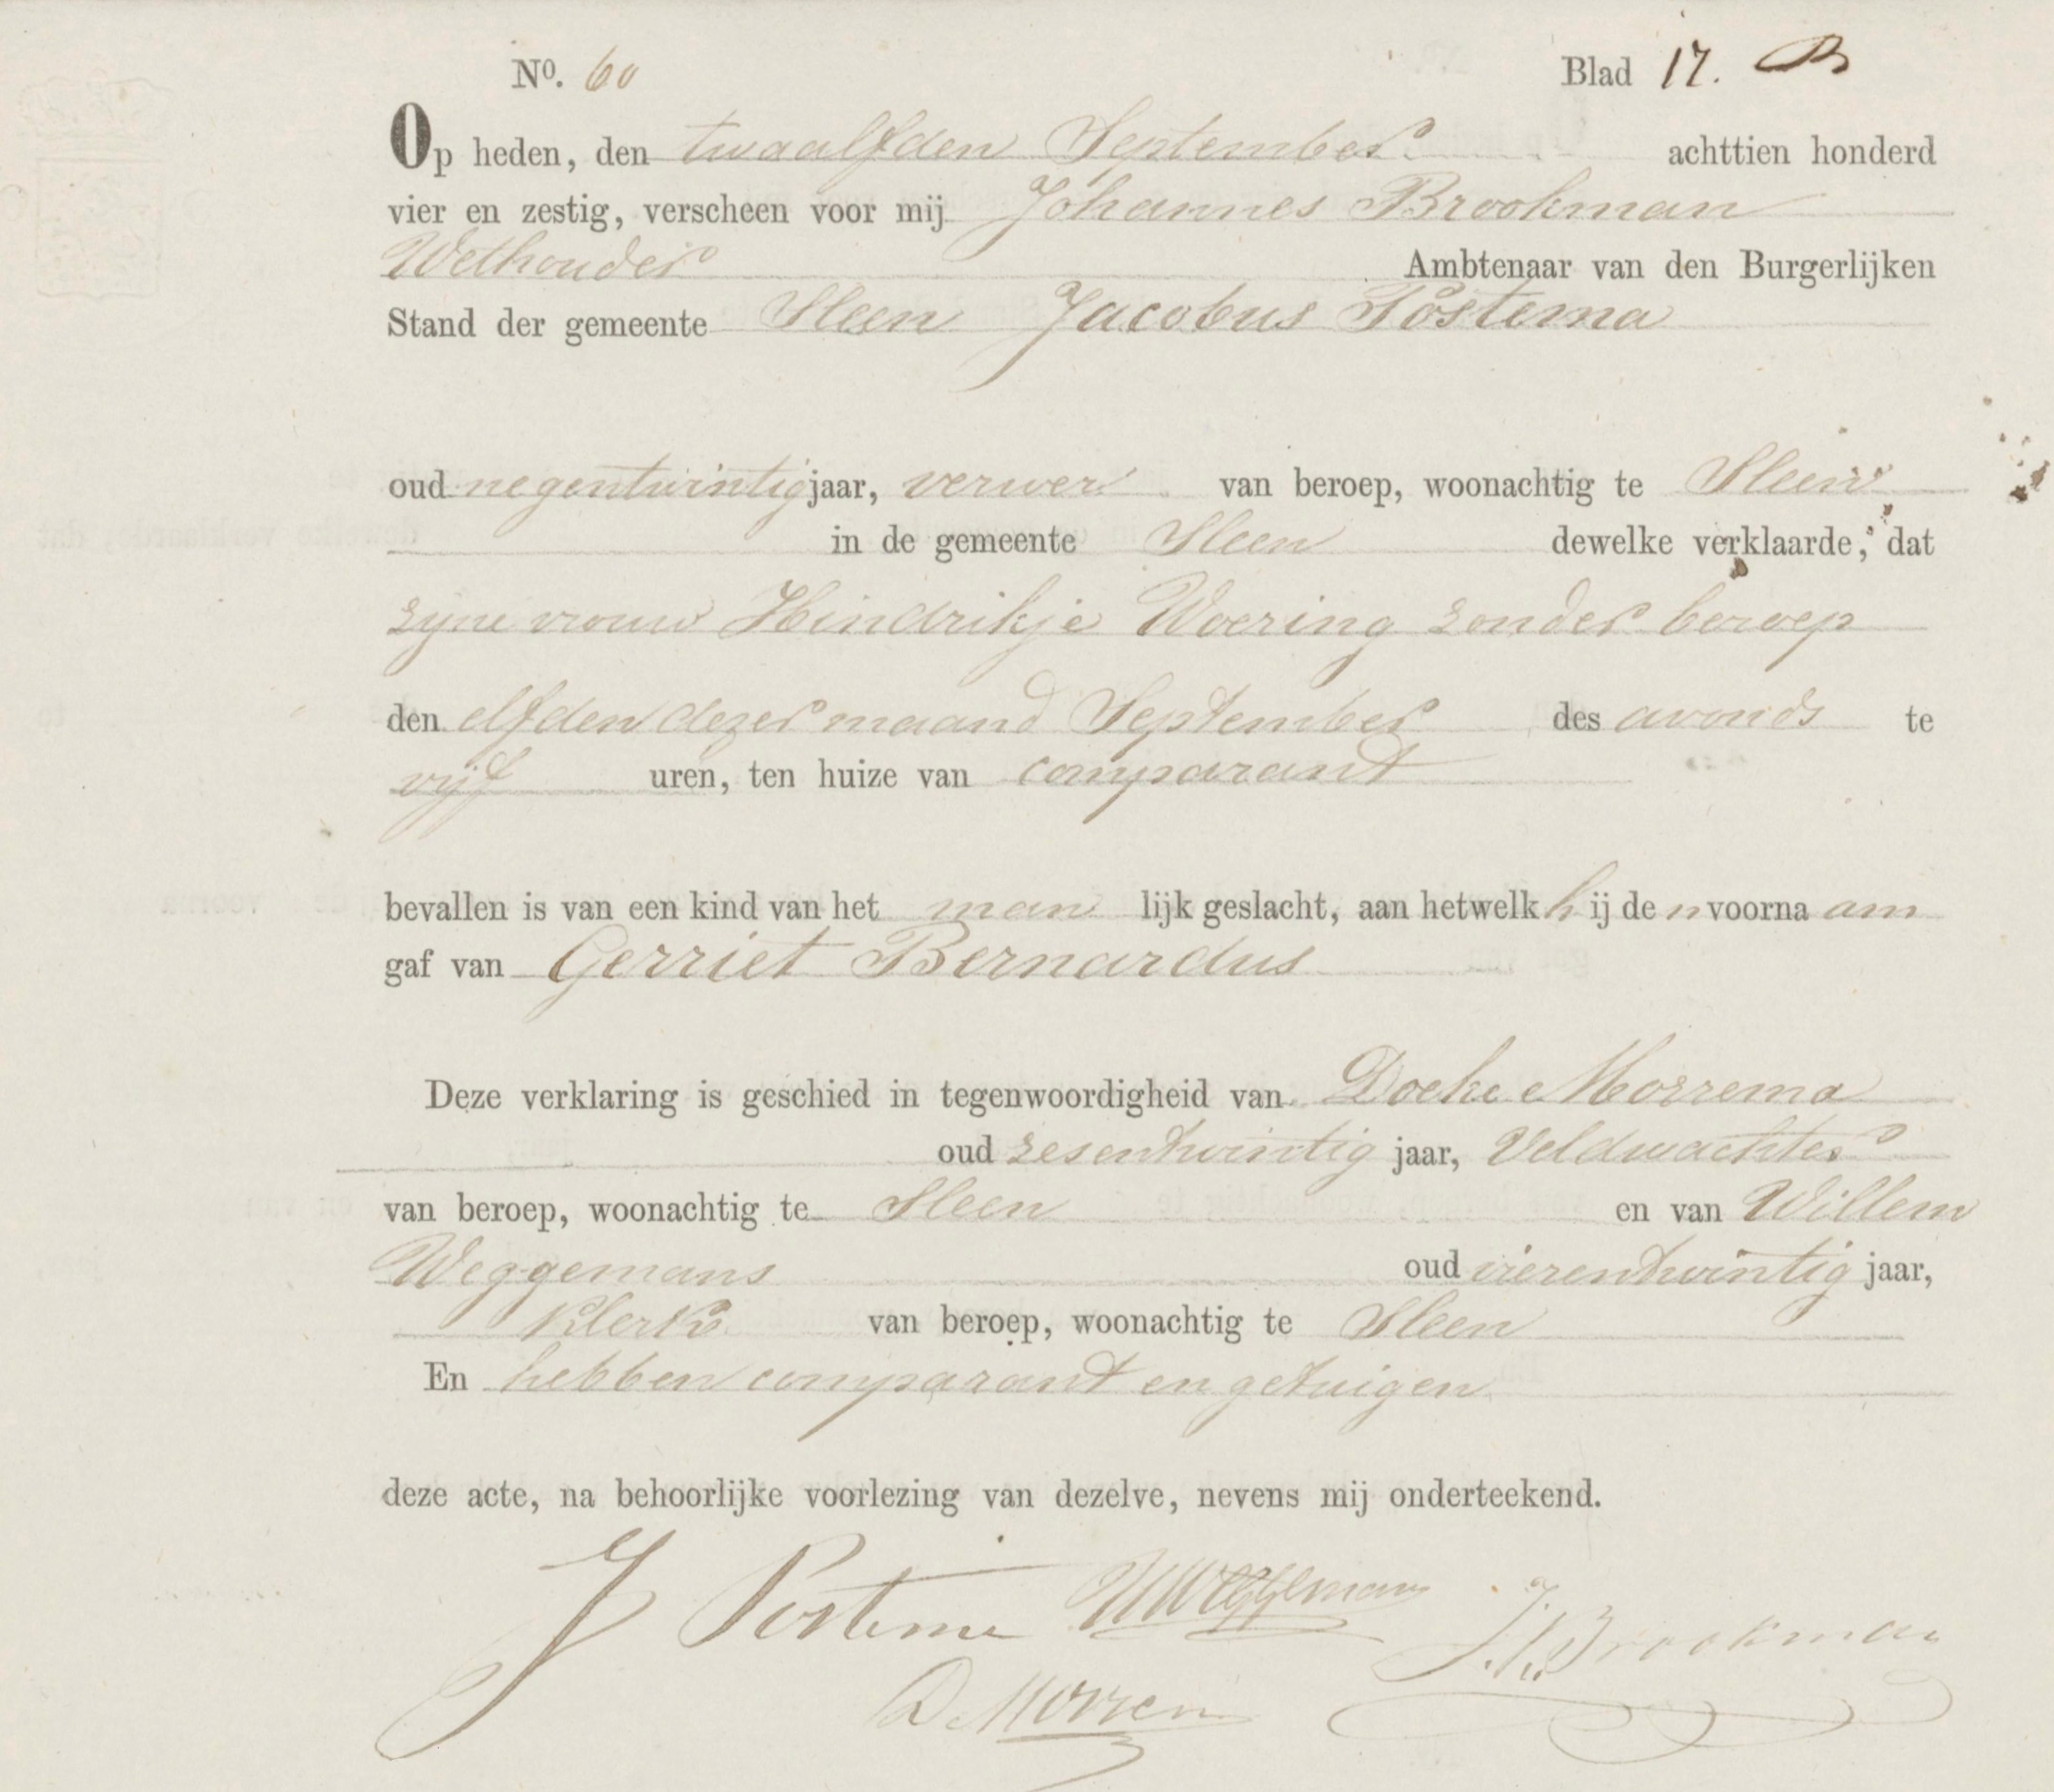 No. 60 Blad 17.
Op heden, den twaalfden September achttien honderd
vier en zestig, verscheen voor mij Johannes Brookman
Wethouder Ambtenaar van den Burgerlijken
Stand der gemeente Sleen Jacobus Postema
oud negentwintig jaar, verwer van beroep, woonachtig te Sleen
in de gemeente Sleen dewelke verklaarde, dat
zyne vrouw Hindrikje Woering zonder beroep
den elfden dezer maand September des avonds te
vijf uren, ten huize van comparant
bevallen is van een kind van het man lijk geslacht, aan hetwelk h ij de n voorna am
gaf van Gerriet Bernardus
Deze verklaring is geschied in tegenwoordigheid van Doeke Morrema
oud zesentwintig jaar, Veldwachter
van beroep, woonachtig te Sleen en van Willem
Weggemans oud vierentwintig jaar,
Klerk van beroep, woonachtig te Sleen
En hebben comparant en getuigen
deze acte, na behoorlijke voorlezing van dezelve, nevens mij onderteekend.
J Postema W Weggemans J. Brookman
D. Morrema